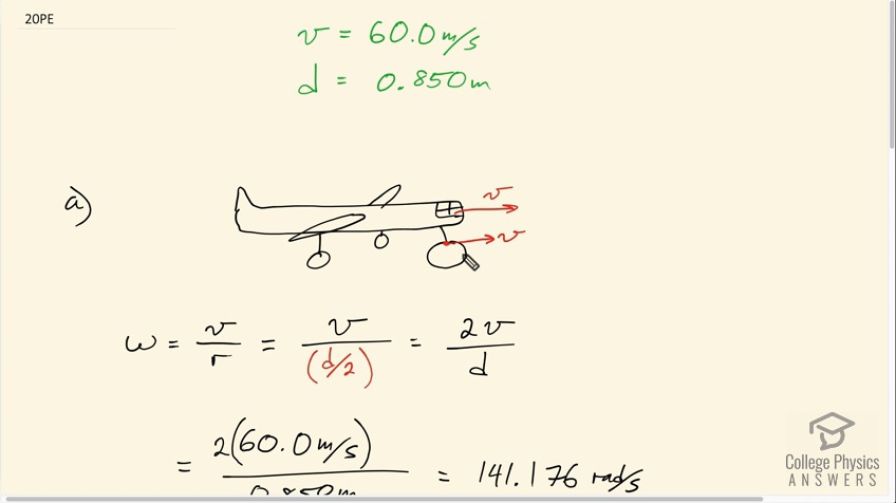 20PE
v = 60.0 m/s
d = 0.850 m
a)
v
v
ω = v/r = v/(d/2) = 2v/d
= 2(60.0 m/s)/0.850m = 141.176 rad/s
College Physics
ANSWERS